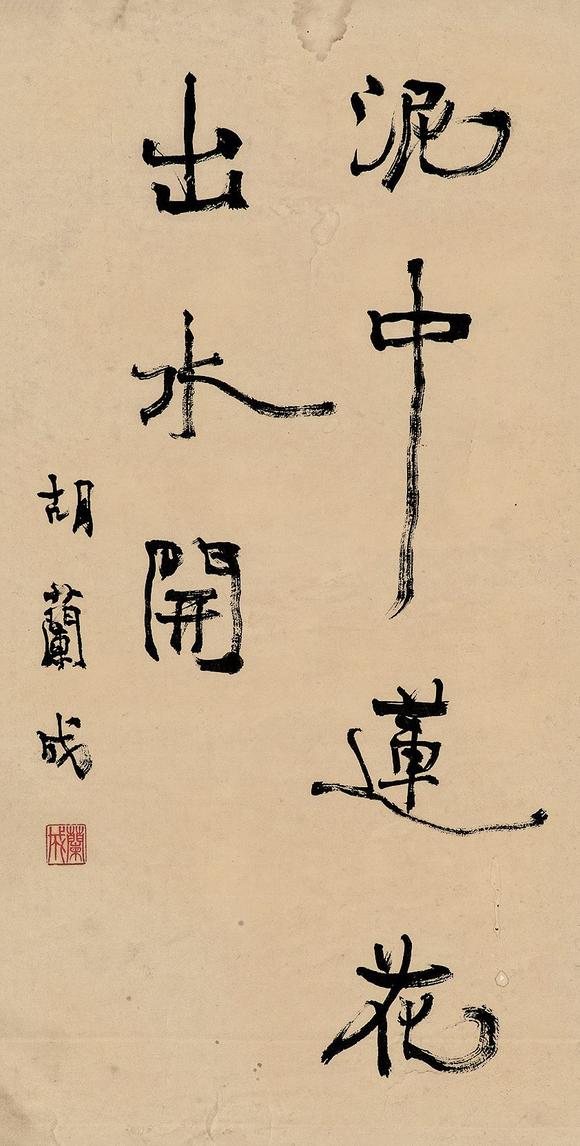 泥中蓮花
出水開
胡蘭成
蘭成